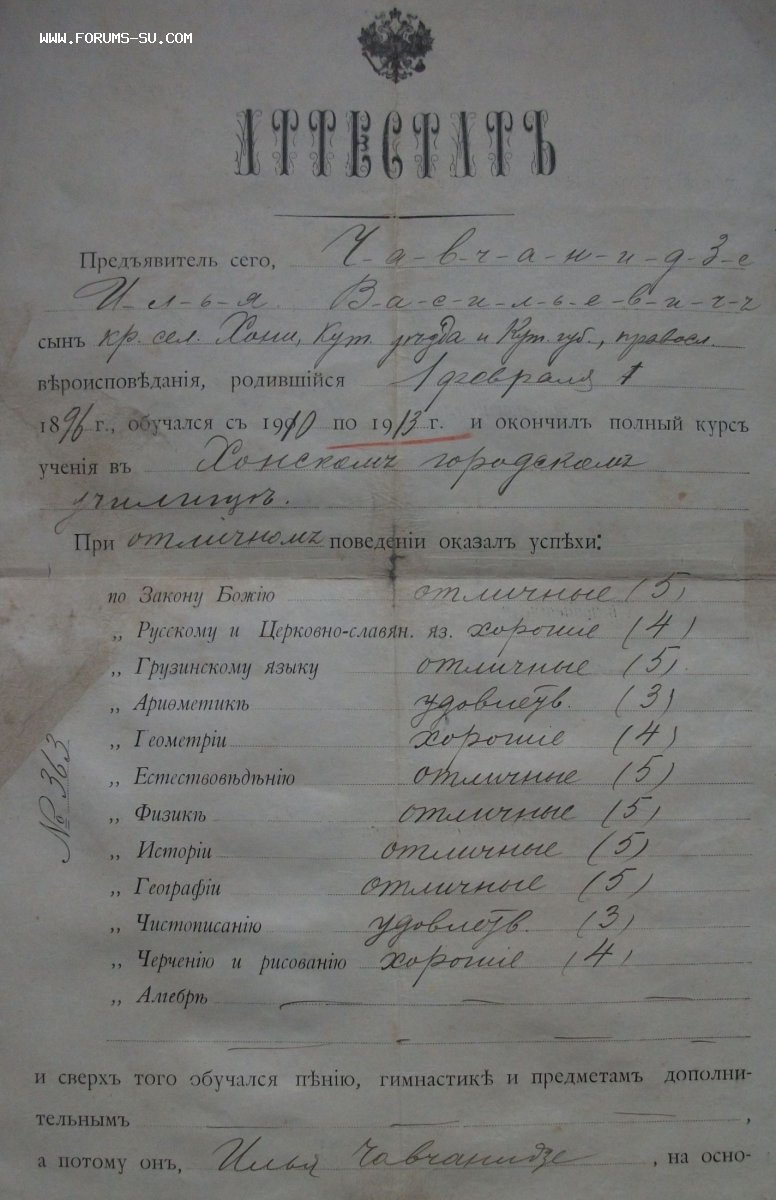 www.forums-su.com
АТТЕСТАТЪ
Предъявитель сего, Ч-а-в-ч-а-н-и-д-з-е
И-л-ь-я В-а-с-и-л-ь-е-в-и-ч-ъ
сынъ кр. сел. Хони, Кут. уѣзда и Кут. губ., правосл.
вѣроисповѣданія, родившійся 1 февраля
1896 г., обучался съ 1910 по 1913 г. и окончилъ полный курсъ
ученія въ Хонскомъ городскомъ
училищѣ.
При отличномъ поведеніи оказалъ успѣхи:
по Закону Божію отличные (5)
„ Русскому и Церковно-славян. яз. хорошіе (4)
„ Грузинскому языку отличные (5).
„ Ариѳметикѣ удовлетв. (3)
„ Геометріи хорошіе (4)
„ Естествовѣдѣнію отличные (5)
„ Физикѣ отличные (5)
„ Исторіи отличные (5)
„ Географіи отличные (5)
„ Чистописанію удовлетв. (3)
„ Черченію и рисованію хорошіе (4)
„ Алгебрѣ —
№ 363
и сверхъ того обучался пѣнію, гимнастикѣ и предметамъ дополни-
тельнымъ — ,
а потому онъ, Илья Чавчанидзе, на осно-